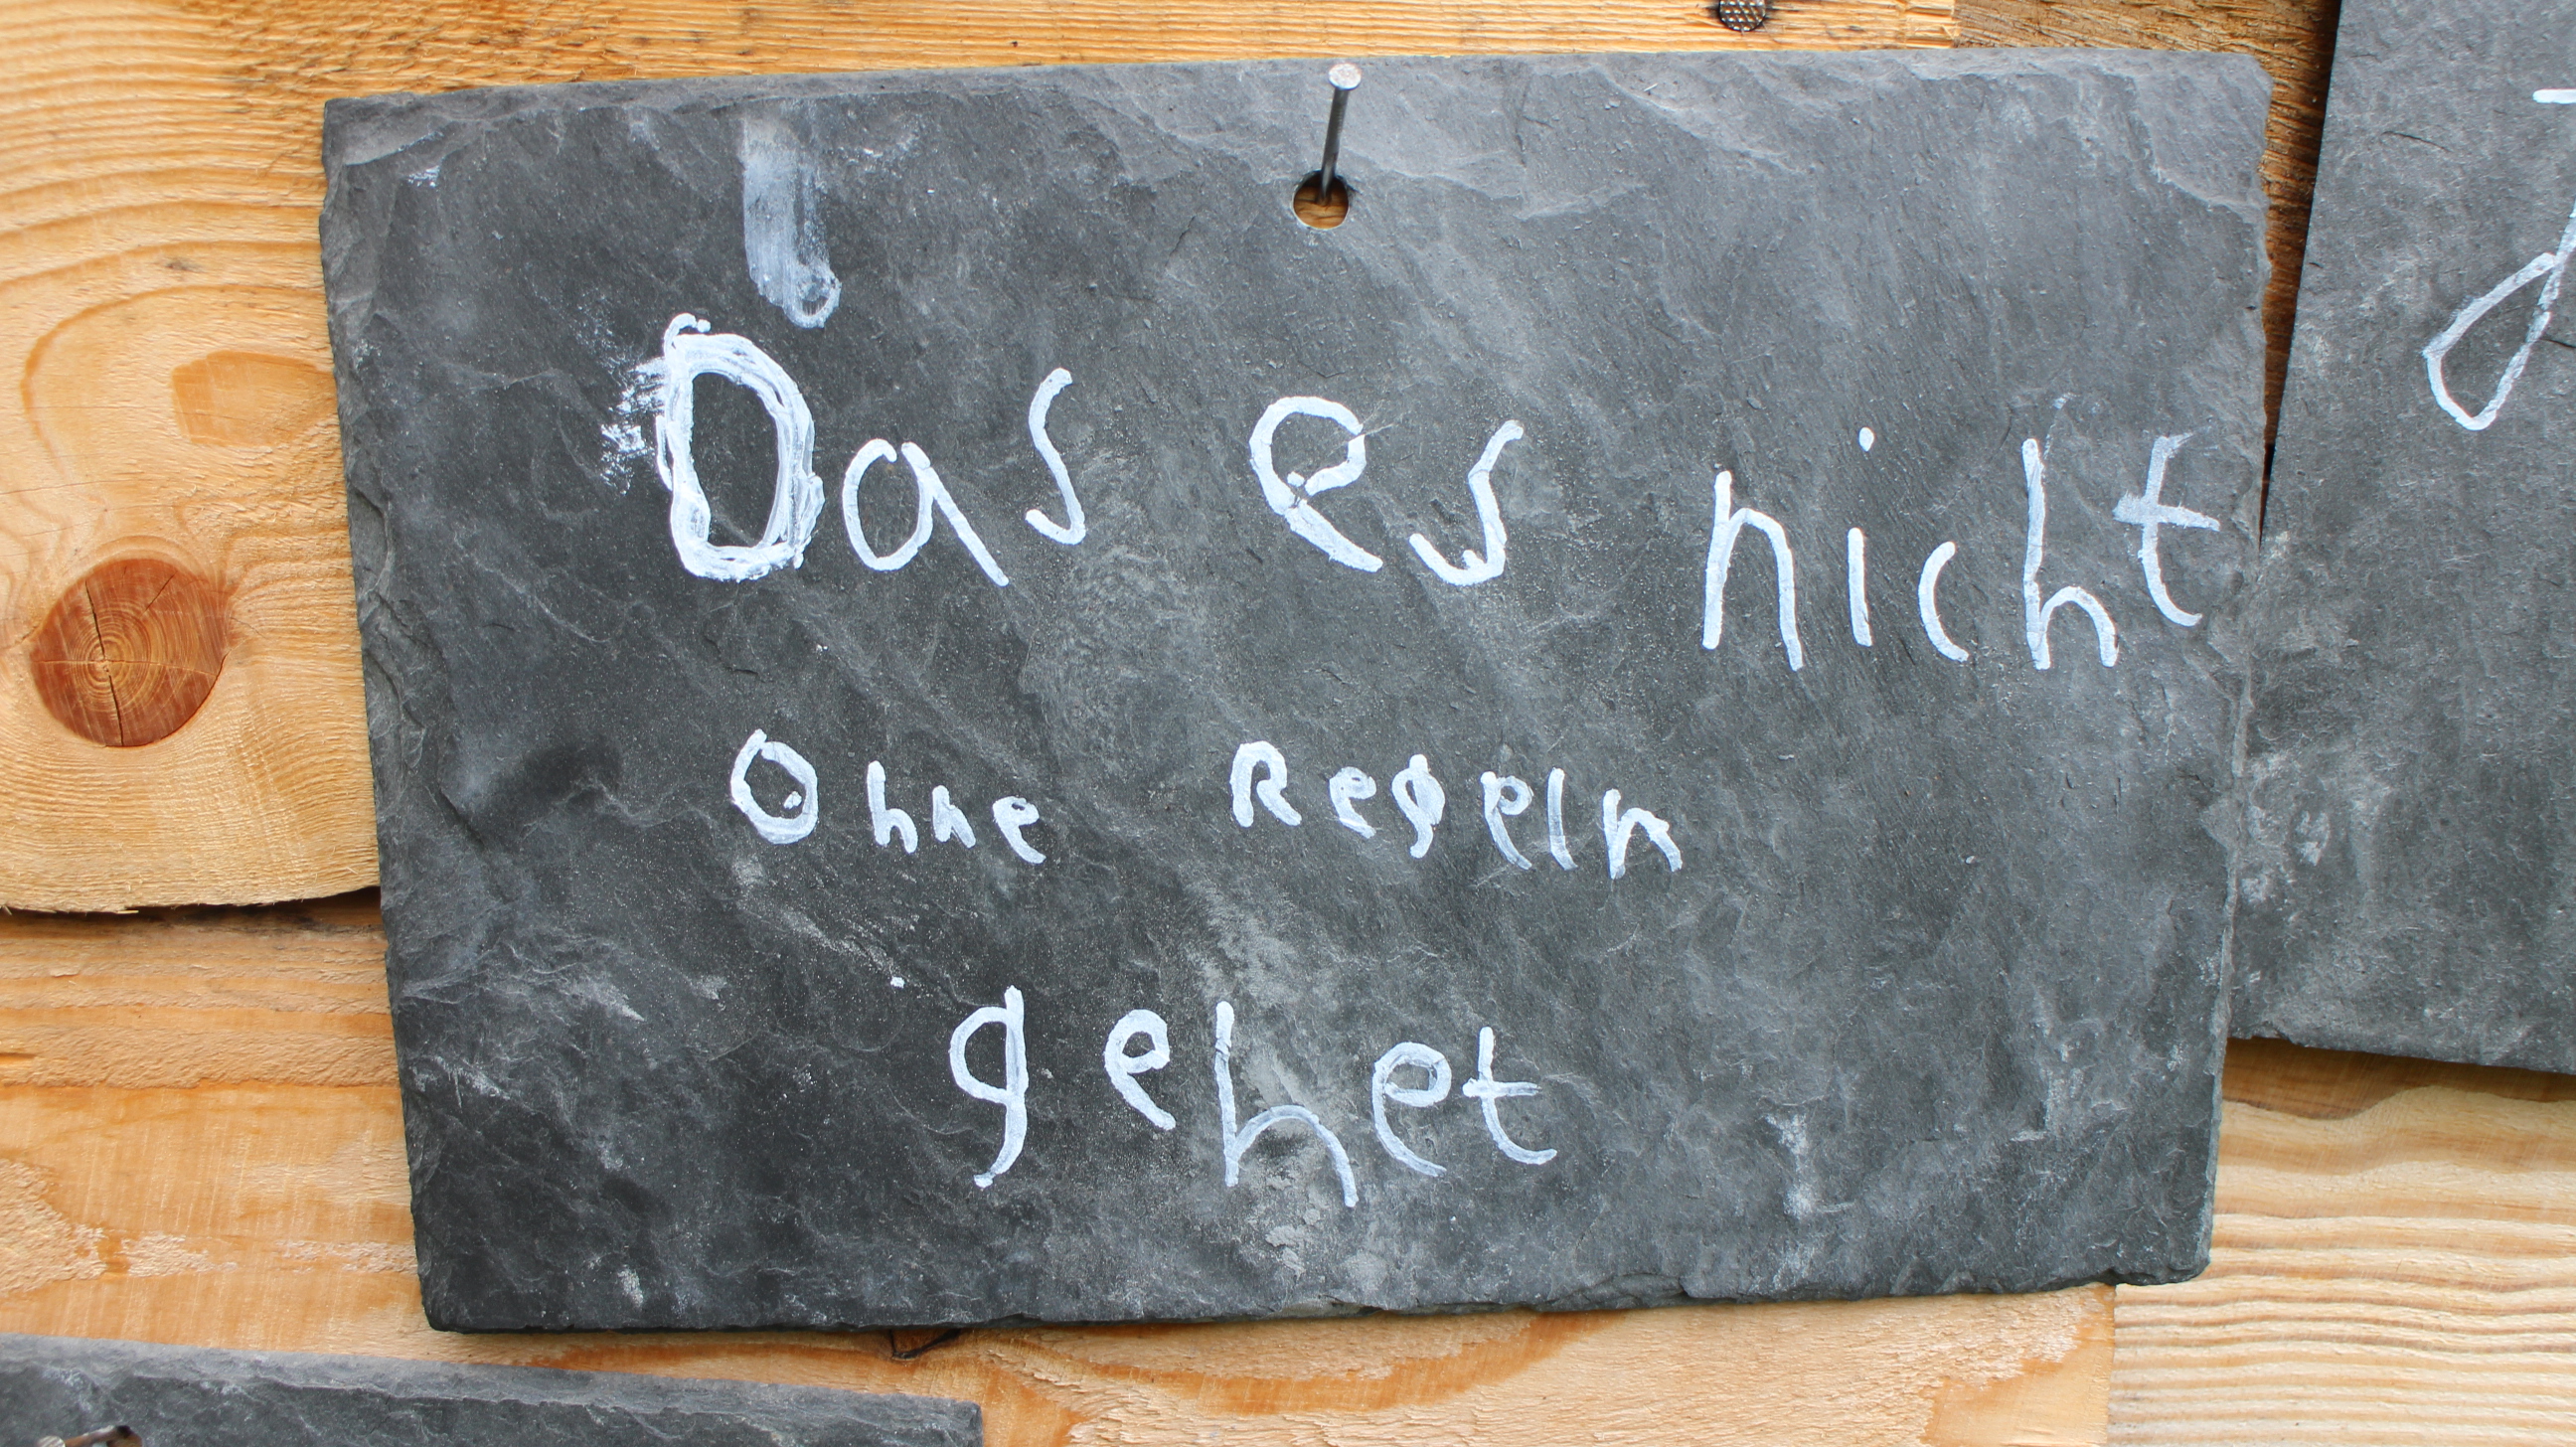 Das es nicht
Ohne Regeln
gehet